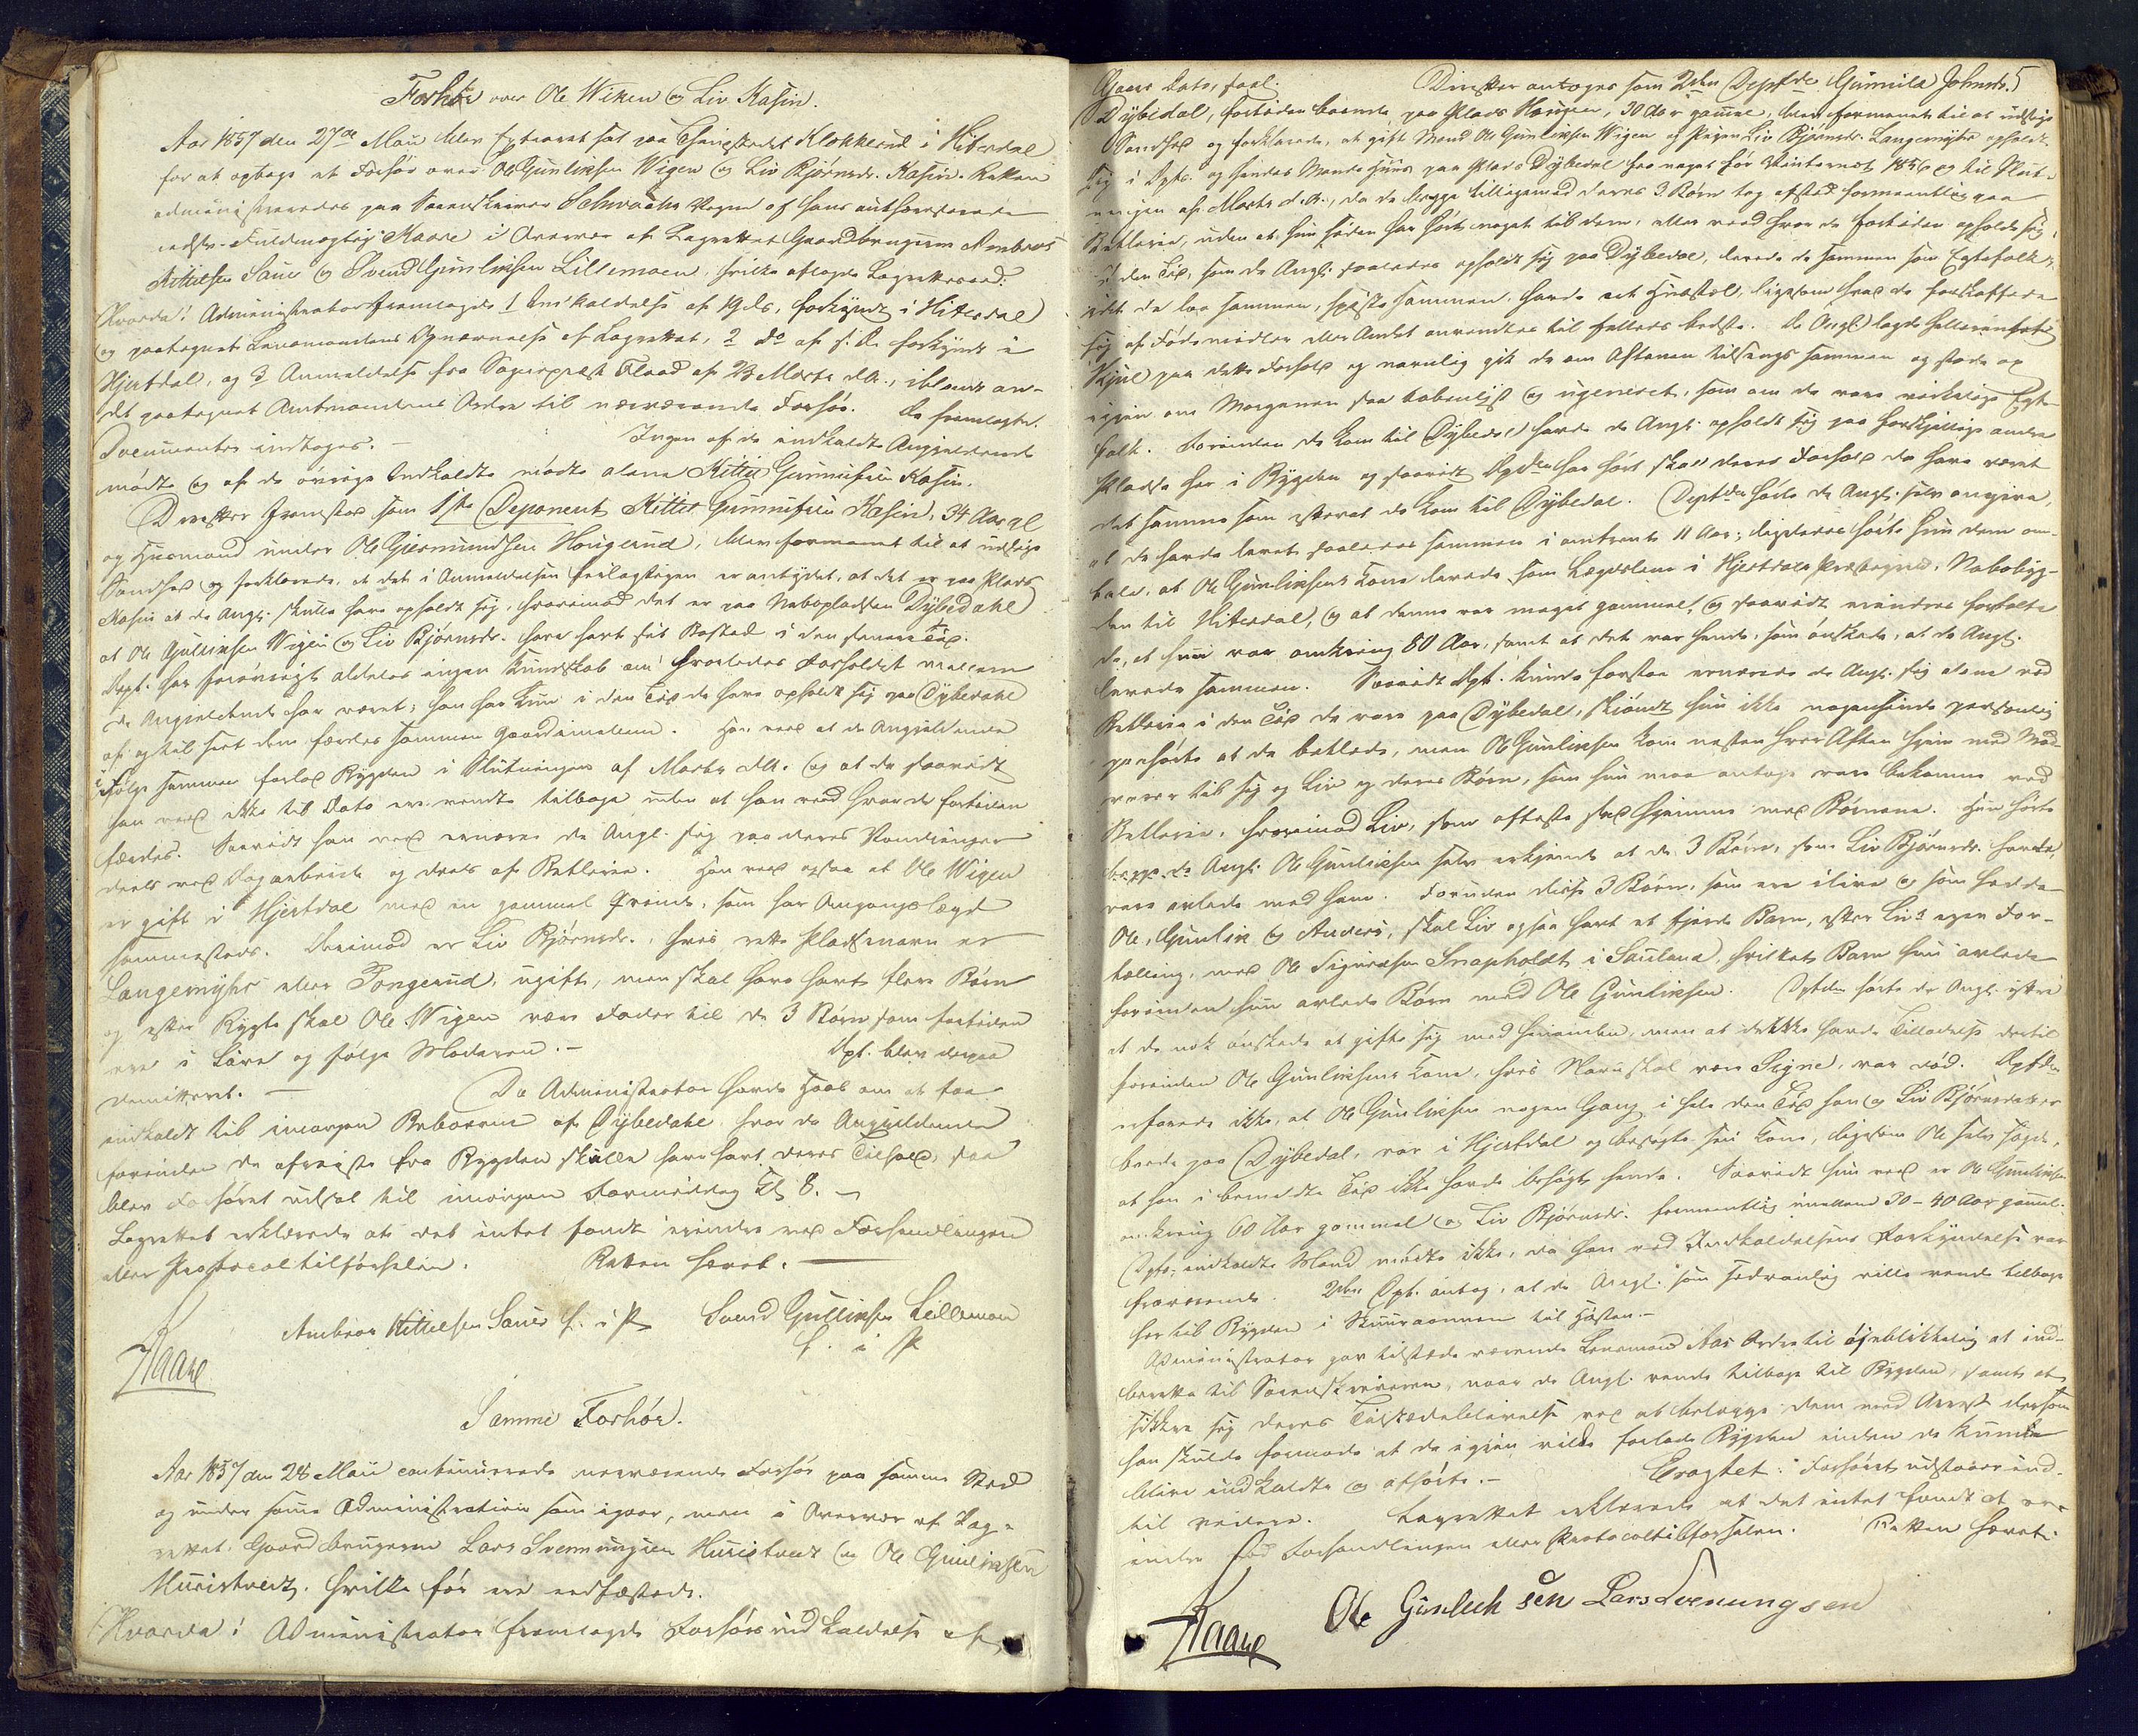 Forhør over Ole Wiken og Liv Kasin.
Aar 1857 den 27de Mai blev Extraret sat paa Thingstedet Klokkerud i Hiterdal
for at optage et Forhør over Ole Gunliksen Wigen og Liv Bjørnsdr. Kasin. Retten
administreredes paa Sorenskriver Schwachs Vegne af hans authoriserede
edsv. Fuldmægtig Kaare i Overvær af Lagrettet Gaardbrugerne Ambros
Kittelsen Saue og Svend Gunliksen Lillemoen, hvilke aflagde Lagretteseed.
Hvorda! Administrator fremlagde 1 Indkaldelse af 19 ds., forkyndt i Hiterdal
og paategnet Lensmandens Opnævnelse af Lagrettet, 2 do af s. D. forkyndt i
Hjertdal, og 3 Anmeldelse fra Sogneprest Flood af 23 Marts d.A., iblandt an-
det paategnet Amtmandens Ordre til nærværende Forhør. De fremlagte
Documenter indtages. – Ingen af de indkaldte Angjeldende
mødte og af de øvrige Indkaldte mødte alene Kittil Gunnufsen Kasin.
Derefter fremstod som 1ste Deponent Kittil Gunnufsen Kasin, 34 Aar gl
og Huusmand under Ole Giermundsen Hougerud, blev formanet til at udsige
Sandhed og forklarede, at det i Anmeldelsen feilagtigen er antydet, at det er paa Plads
Kasin at de Angl. skulle have opholdt sig, hvorimod det er paa Nabopladsen Dybedahl
at Ole Gulliksen Wigen og Liv Bjørnsdr. have havt sit Bosted i den senere Tid.
Dept. har forøvrigt aldeles ingen Kundskab om hvorledes Forholdet mellem
de Angjeldende har været; han har kun i den Tid de have opholdt sig paa Dybedahl
af og til seet dem færdes sammen gaardimellem. Han veed at de Angjeldende
i Følge sammen forlod Bygden i Slutningen af Marts d.A. og at de saavidt
han veed ikke til Dato ere vendte tilbage uden at han veed hvor de fortiden
færdes. Saavidt han veed ernærer de Angl. sig paa deres Vandringer
deels ved Dagarbeide og deels af Betlerie. Han veed ogsaa at Ole Wigen
er gift i Hjertdal med en gammel Qvinde, som har Omgangslægd
sammesteds. Derimod er Liv Bjørnsdr., hvis rette Pladsnavn er
Langemyhr eller Tongerud, ugift, men skal have havt flere Børn
og efter Rygte skal Ole Wigen være Fader til de 3 Børn som fortiden
ere i Live og følge Moderen. – Dpt. blev derpaa
demitteret. –
Da Administrator havde Haab om at faa
indkaldt til imorgen Beboerne af Dybedahl hvor de Angjeldende
forinden de afreiste fra Bygden skulle have havt deres Tilhold, saa
blev Forhøret udsat til imorgen Formiddag Kl 8. –
Lagrettet erklærede at det intet fandt erindre ved Forhandlingen
eller Protocoltilførselen. Retten hævet. –
Ambros Kittelsen Saue f. i P Svend Gulliksen Lillemoen
f. i P
Kaare
Samme Forhør.
Aar 1857 den 28 Mai continuerede nærværende Forhør paa samme Sted
og under samme Administration som igaar, men i Overvær af Lag-
rettet Gaardbrugerne Lars Svenungsen Huustvedt og Ole Gunliksen
Huustvedt, hvilke før ere edfæstede.
Hvorda! Administrator fremlagde Forhørsindkaldelse af
Gaars Dato, saal. Derefter antoges som 2den Deptde Gunnild Johnsdr. 5
Dybedal, fortiden boende paa Plads Haugen, 30 Aar gammel, blev formanet til at udsige
Sandhed og forklarede, at gift Mand Ole Gunliksen Wigen og Pigen Liv Bjørnsdr. Langemyhr opholdt
sig i Dpts. og hendes Mands Huus paa Plads Dybedal fra noget før Vinternat 1856 og til Slut-
ningen af Marts d.A., da de begge tilligemed deres 3 Børn tog afsted formeentlig paa
Betlerie, uden at hun siden har hørt noget til dem, eller veed hvor de fortiden opholde sig.
I den Tid, som de Angl. saaledes opholdt sig paa Dybedal, levede de sammen som Egtefolk,
idet de laae sammen, spiste sammen, havde eet Huushold, ligesom hvad de forskaffede
sig af Fødemidler eller Andet anvendtes til fælleds bedste. De Angl. lagde heller ikke
Skjul paa dette Forhold og navnlig gik de om Aftenen tilsengs sammen og stode op
igjen om Morgenen saa aabenlyst og ugeneret, som om de vare virkelige Egte-
folk. Forinden de kom til Dybedal havde de Angl. opholdt sig paa forskjellige andre
Pladse her i Bygden og saavidt Dptden har hørt skal deres Forhold da have været
det samme som efterat de kom til Dybedal. Deptden hørte de Angl. selv angive,
at de havde levet saaledes sammen i omtrent 11 Aar; ligeledes hørte hun dem om-
tale, at Ole Gunliksens Kone levede som Lægdslem i Hjertdals Prestegjeld, Nabobyg-
den til Hiterdal, og at denne var meget gammel, og saavidt erindres fortalte
de, at hun var omkring 80 Aar, samt at det var hende, som ønskede, at de Angl.
levede sammen. Saavidt Dpt. kunde forstaa ernærede de Angl. sig alene ved
Betlerie i den Tid de vare paa Dybedal, skjøndt hun ikke nogensinde personlig
paahørte at de betlede, men Ole Gunliksen kom næsten hver Aften hjem med Mad-
varer til sig og Liv og deres Børn, som hun maa antage vare bekomne ved
Betlerie, hvorimod Liv, som oftest sad hjemme med Børnene. Hun hørte
begge de Angl. Ole Gunliksen selv erkjende at de 3 Børn, som Liv Bjørnsdr. havde,
vare avlede med ham. Foruden disse 3 Børn, som ere ilive og som hedde
Ole, Gunlik og Anders, skal Liv ogsaa havt et fjerde Barn, efter Livs egen For-
tælling, med Ole Sigurdsen Snapholdt i Sauland, hvilket Barn hun avlede
forinden hun avlede Børn med Ole Gunliksen. Dptden hørte de Angl. yttre
at de nok ønskede at gifte sig med hinanden, men at de ikke havde Tilladelse dertil
forinden Ole Gunliksens Kone, hvis Navn skal være Signe, var død. Dptden
erfarede ikke, at Ole Gunliksen nogen Gang i hele den Tid han og Liv Bjørnsdatter
boede paa Dybedal, var i Hjertdal og besøgte sin Kone, ligesom Ole selv sagde,
at han i bemeldte Tid ikke havde besøgt hende. Saavidt hun veed er Ole Gunliksen
omkring 60 Aar gammel og Liv Bjørnsdr. formeentlig imellem 30–40 Aar gammel.
Dpts. indkaldte Mand mødte ikke, da han ved Indkaldelsens Forkyndelse var
fraværende. 2den Dpt. antog, at de Angl. som sædvanlig ville vende tilbage
her til Bygden i Skuuraannen til Høsten. –
Administrator gav tilstedeværende Lensmand Aas Ordre til øieblikkelig at ind-
berette til Sorenskriveren, naar de Angl. vende tilbage til Bygden, samt at
sikkre sig deres Tilstedeblivelse ved at belægge dem med Arrest dersom
han skulde formode at de igjen vilde forlade Bygden inden de kunde
blive indkaldte og afhørte. – Eragtet: Forhøret udstaaer ind-
til videre. Lagrettet erklærede at det intet fandt at er-
indre ved Forhandlingen eller Protocoltilførselen. Retten hævet.
Ole Gunleck sen Lars Svenungsen
Kaare